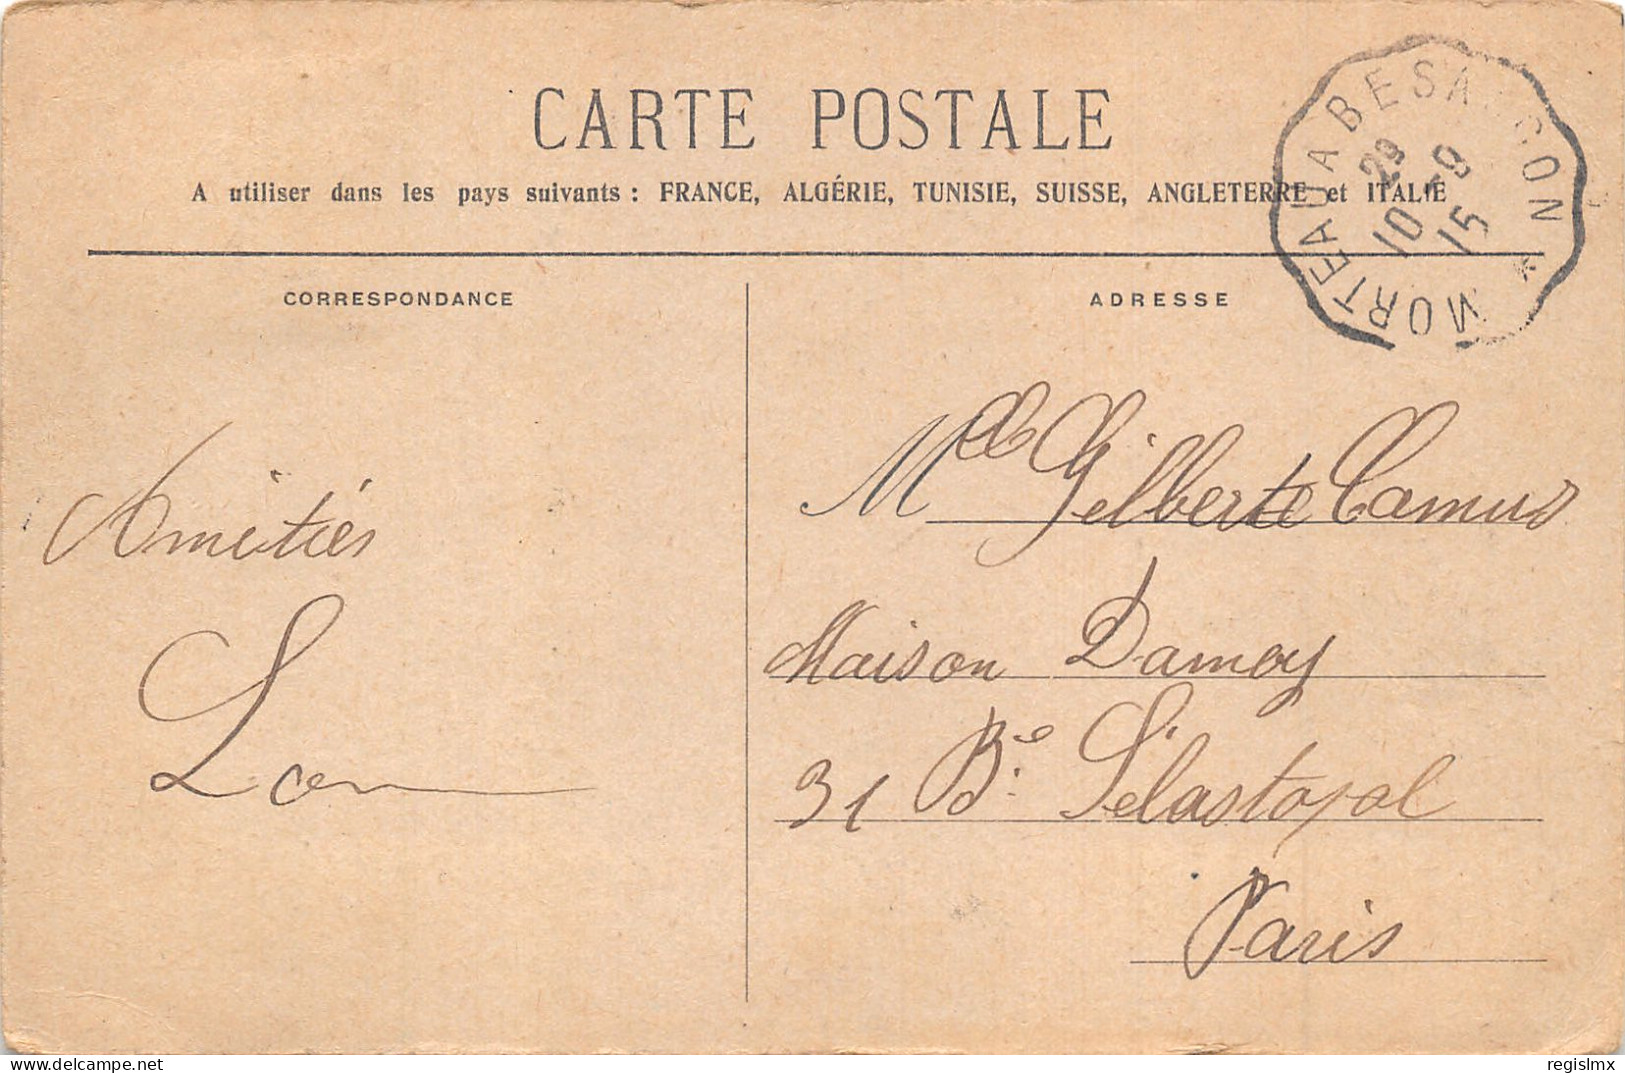 CARTE POSTALE
A utiliser dans les pays suivants : FRANCE, ALGÉRIE, TUNISIE, SUISSE, ANGLETERRE et ITALIE
MORTEAU A BESANÇON *
29 - 9
10 15
CORRESPONDANCE
Amitiés
ADRESSE
Mlle Gilberte Camus
Maison Damoy
31 Bd Sébastopol
Paris
www.delcampe.net
regislmx